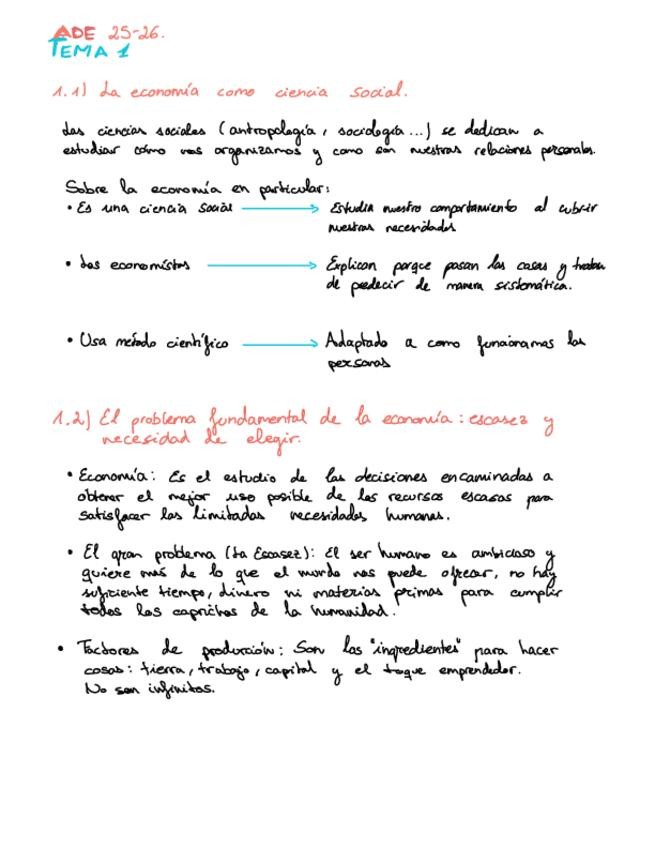 ADE 25-26.
TEMA 1
1.1) La economía como ciencia social.
Las ciencias sociales (antropología, sociología...) se dedican a
estudiar cómo nos organizamos y como son nuestras relaciones personales.
Sobre la economía en particular:
• Es una ciencia social → Estudia nuestro comportamiento al cubrir
nuestras necesidades
• Los economistas → Explican porque pasan las cosas y tratan
de predecir de manera sistemática.
• Usa método científico → Adaptado a como funcionamos las
personas
1.2) El problema fundamental de la economía: escasez y
necesidad de elegir.
• Economía: Es el estudio de las decisiones encaminadas a
obtener el mejor uso posible de los recursos escasos para
satisfacer las limitadas necesidades humanas.
• El gran problema (La Escasez): El ser humano es ambicioso y
quiere más de lo que el mundo nos puede ofrecer, no hay
suficiente tiempo, dinero ni materias primas para cumplir
todos los caprichos de la humanidad.
• Factores de producción: Son los "ingredientes" para hacer
cosas: tierra, trabajo, capital y el toque emprendedor.
No son infinitos.